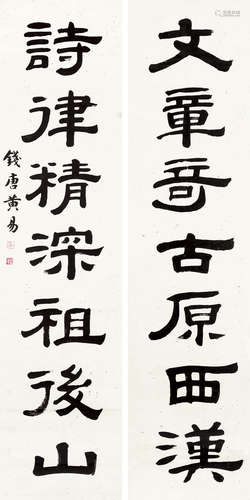 文章奇古原西漢
詩律精深祖後山
錢唐黃易